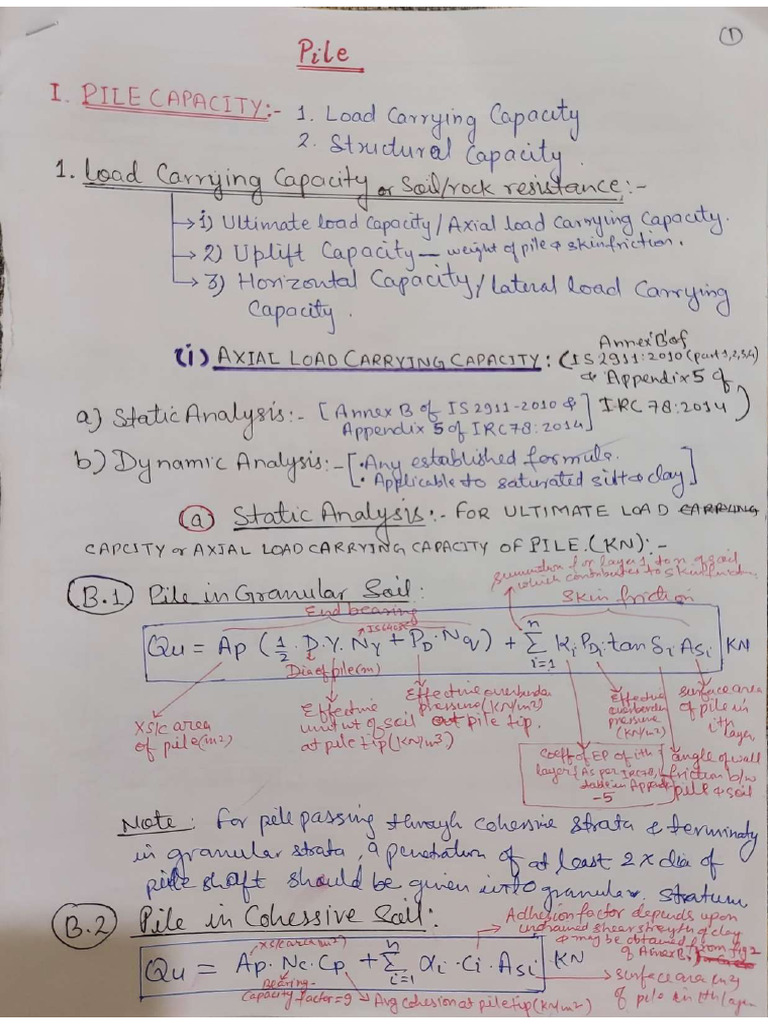 ①
Pile
I. PILE CAPACITY:- 1. Load Carrying Capacity
2. Structural Capacity.
1. Load Carrying Capacity or Soil/rock resistance:-
→ 1) Ultimate load Capacity / Axial load Carrying Capacity.
→ 2) Uplift Capacity — weight of pile & skin friction.
→ 3) Horizontal Capacity / lateral load Carrying
Capacity.
(i) AXIAL LOAD CARRYING CAPACITY: (Annex B of
IS 2911:2010 (part 1,2,3,4)
& Appendix 5 of
IRC 78:2014)
a) Static Analysis:- [Annex B of IS 2911-2010 &
Appendix 5 of IRC 78:2014]
b) Dynamic Analysis:- [• Any established formula.
• Applicable to saturated silt & clay]
(a) Static Analysis:- FOR ULTIMATE LOAD CARRYING
CAPCITY or AXIAL LOAD CARRYING CAPACITY OF PILE.(KN):-
summation for layer 1 to n of soil
which contributes to skin friction
B.1 Pile in Granular Soil:
End bearing
Skin friction
IS code
Qu = Ap (1/2 · D · γ · Nγ + PD · Nq) + Σ(i=1 to n) Ki PDi tan δi Asi KN
Dia of pile (m)
Xs/c area
of pile (m2)
Effective
unit wt of soil
at pile tip (KN/m3)
Effective overburden
pressure (KN/m2)
at pile tip.
Effective
overburden
pressure
(KN/m2)
surface area
of pile in
ith
layer
coeff of EP of ith
layer { As per IRC 78,
table in Appendix
-5
angle of wall
friction b/w
pile & soil
Note: For pile passing through cohesive strata & terminaty
in granular strata, a penetration of at least 2 x dia of
pile shaft should be given into granular stratum
B.2 Pile in Cohessive Soil:
Adhesion factor depends upon
undrained shear strength of clay
& may be obtained from fig 2
of Annex B.
Xs/c area (m2)
Qu = Ap · Nc · Cp + Σ(i=1 to n) αi · Ci · Asi KN
Bearing
Capacity factor = 9
Avg cohesion at pile tip (KN/m2)
surface area (m2)
of pile in ith layer